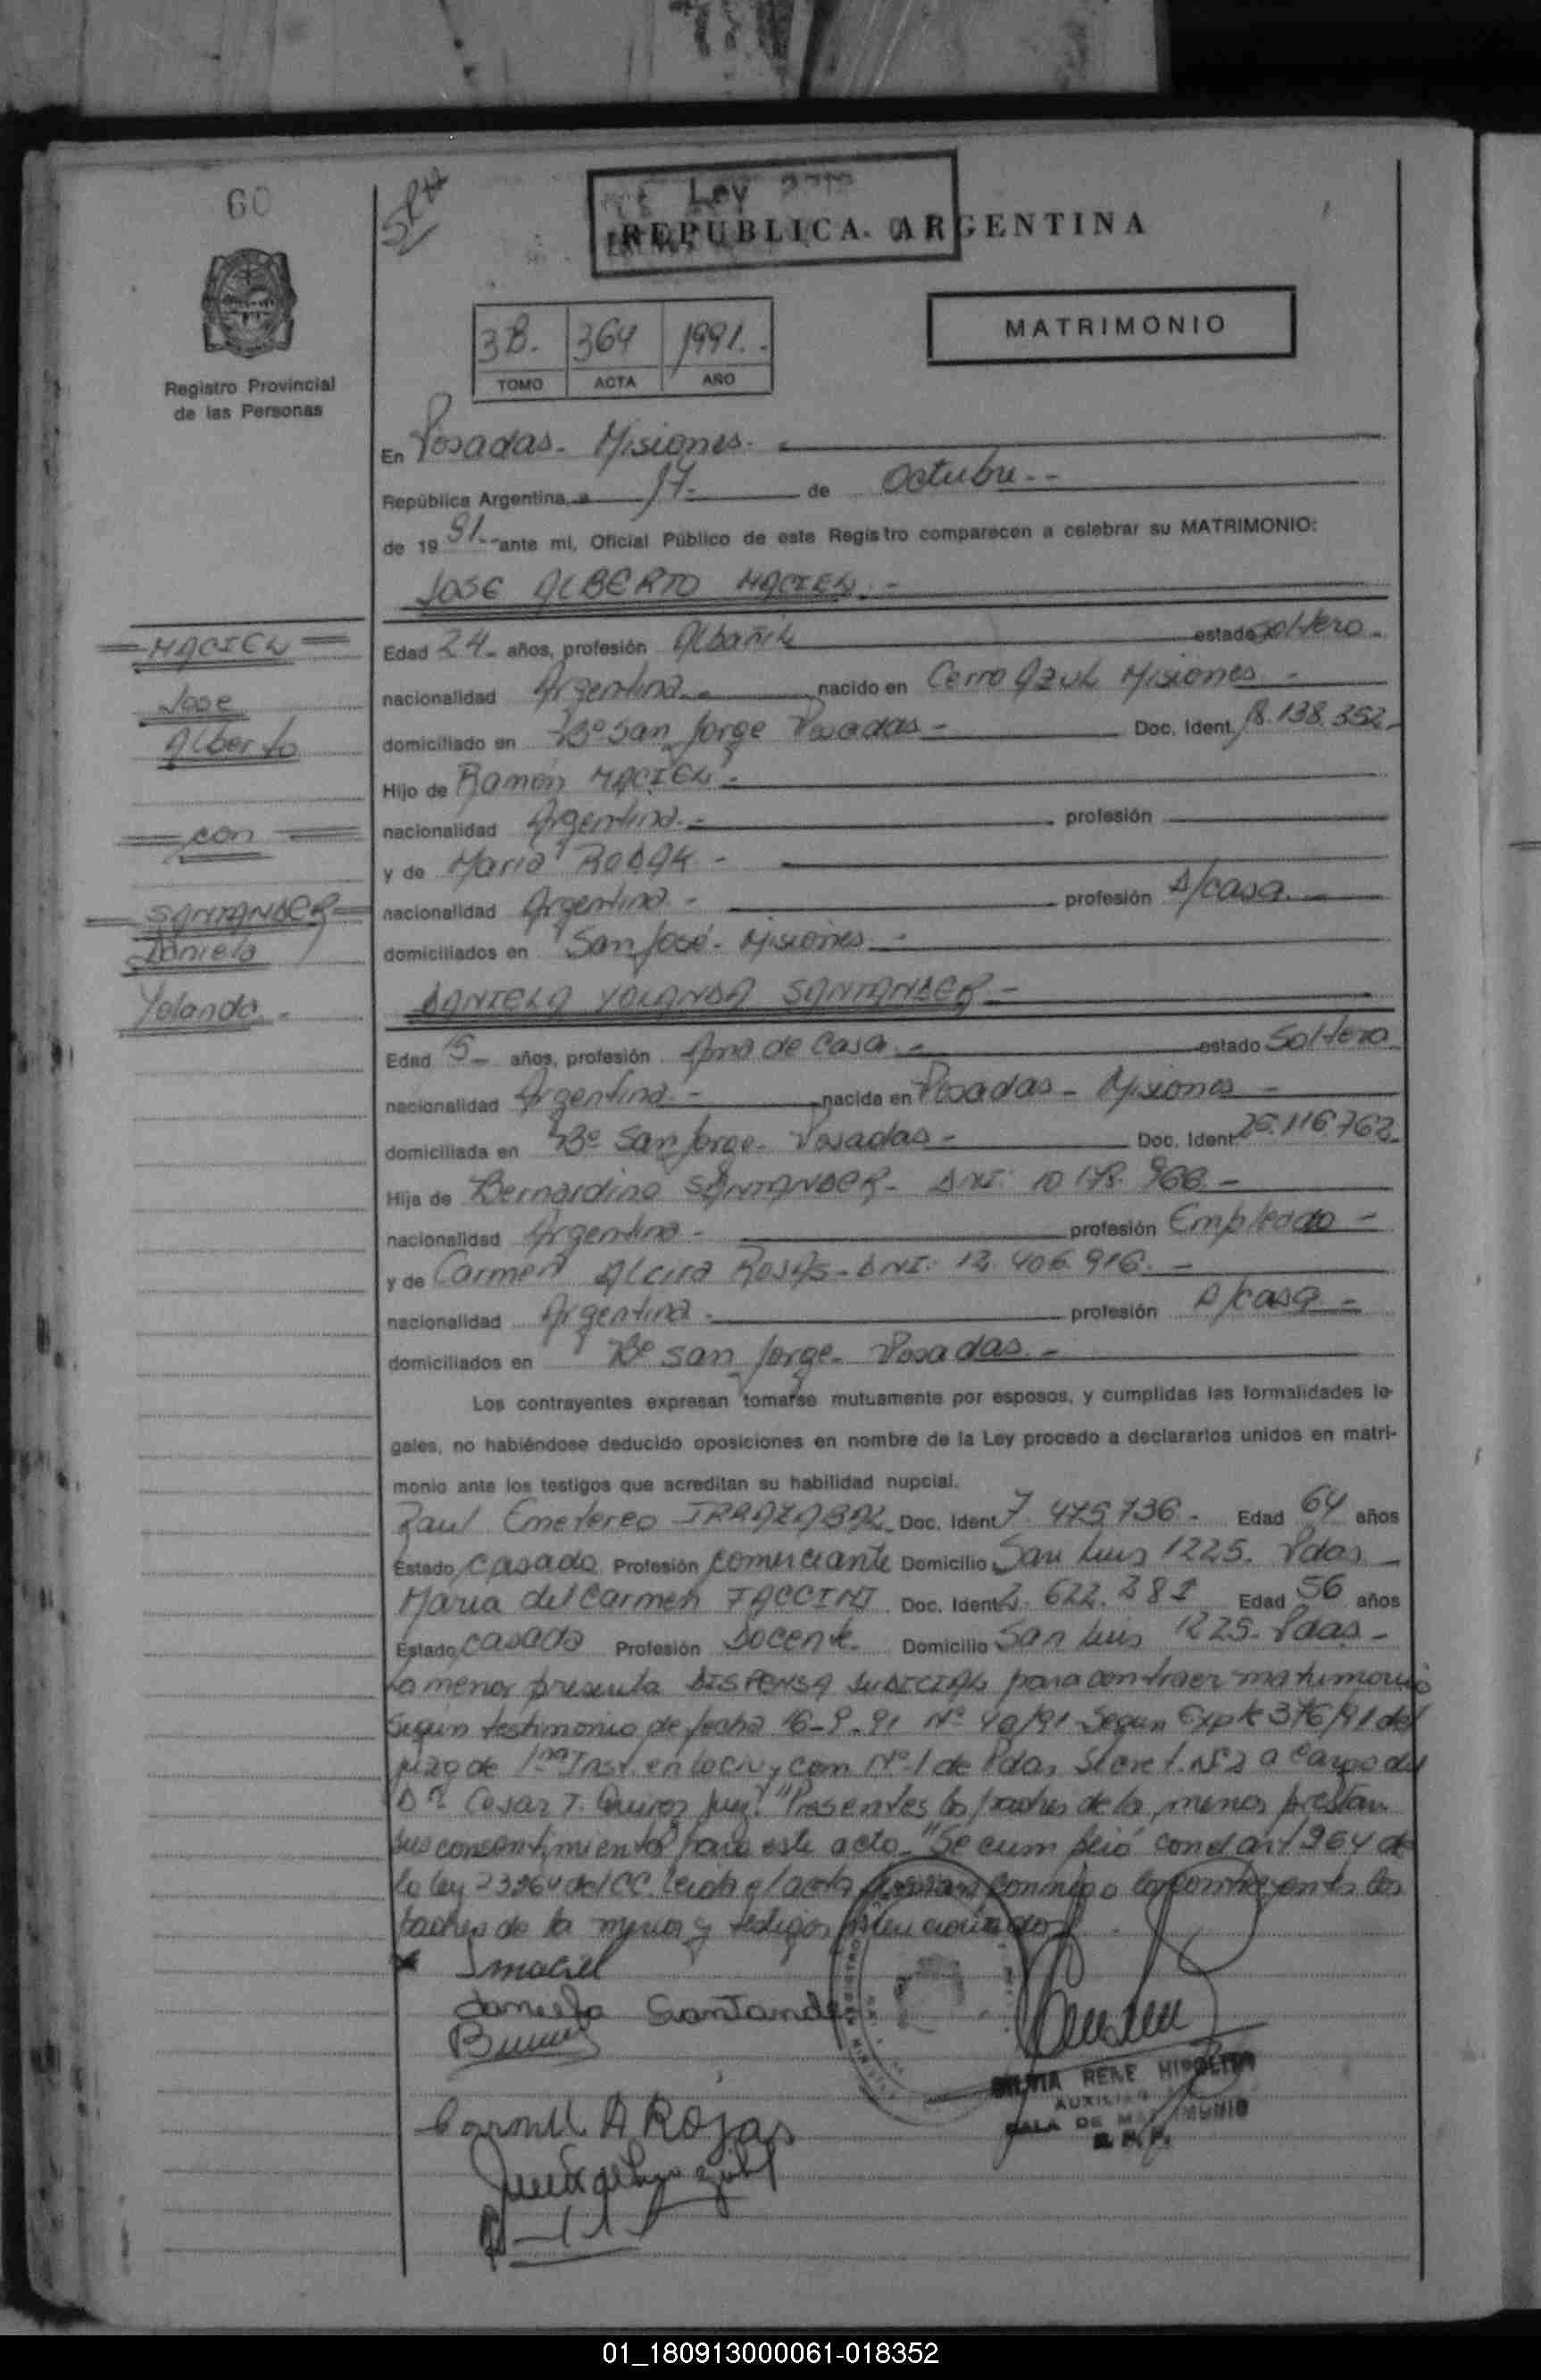 60
Ley
REPUBLICA ARGENTINA
3B. 364 1991.
TOMO ACTA AÑO
MATRIMONIO
Registro Provincial
de las Personas
En Posadas - Misiones.
República Argentina, a 17 de Octubre
de 19 91 ante mi, Oficial Público de este Registro comparecen a celebrar su MATRIMONIO:
JOSE ALBERTO MACIEL
MACIEL
Jose
Alberto
con
SANTANDER
Daniela
Yolanda
Edad 24 años, profesión Albañil estado Soltero
nacionalidad Argentina nacido en Cerro Azul Misiones
domiciliado en Bº San Jorge Posadas Doc. Ident. 18.138.352
Hijo de Ramón MACIEL
nacionalidad Argentina profesión
y de Maria
nacionalidad Argentina profesión A/casa
domiciliados en San José - Misiones
DANIELA YOLANDA SANTANDER
Edad 15 años, profesión Ama de Casa estado Soltera
nacionalidad Argentina nacida en Posadas - Misiones
domiciliada en Bº San Jorge - Posadas Doc. Ident. 26.116.762
Hija de Bernardino SANTANDER - DNI: 10.178.966
nacionalidad Argentina profesión Empleado
y de Carmen Alcira ROJAS - DNI: 12.406.916
nacionalidad Argentina profesión A/casa
domiciliados en Bº San Jorge - Posadas
Los contrayentes expresan tomarse mutuamente por esposos, y cumplidas las formalidades le-
gales, no habiéndose deducido oposiciones en nombre de la Ley procedo a declararlos unidos en matri-
monio ante los testigos que acreditan su habilidad nupcial.
Raul Emetereo IRRAZABAL Doc. Ident. 7.475.736 - Edad 64 años
Estado Casado Profesión Comerciante Domicilio San Luis 1225. Pdas
Maria del Carmen FACCINI Doc. Ident. 2.622.281 Edad 56 años
Estado Casada Profesión Docente Domicilio San Luis 1225 - Pdas -
La menor presenta DISPENSA JUDICIAL para contraer matrimonio
Segun testimonio de fecha 16-9-91 Nº 40/91 Segun Expte 376/91 del
juzg de 1ra Inst. en lo Civ y Com Nº 1 de Pdas, Secret. Nº 2 a cargo del
Dr Cesar T. Quiroz Juez. Presentes los padres de la menor prestan
sus consentimientos para este acto. Se cumplió con el art 264 de
la ley 23264 del CC. Leida el acta firman conmigo los contrayentes los
padres de la menor y testigos mencionados
J maciel
daniela Santander
Carmen A Rojas
SILVIA RENE HIPOLITO
AUXILIAR
SALA DE MATRIMONIO
01_180913000061-018352